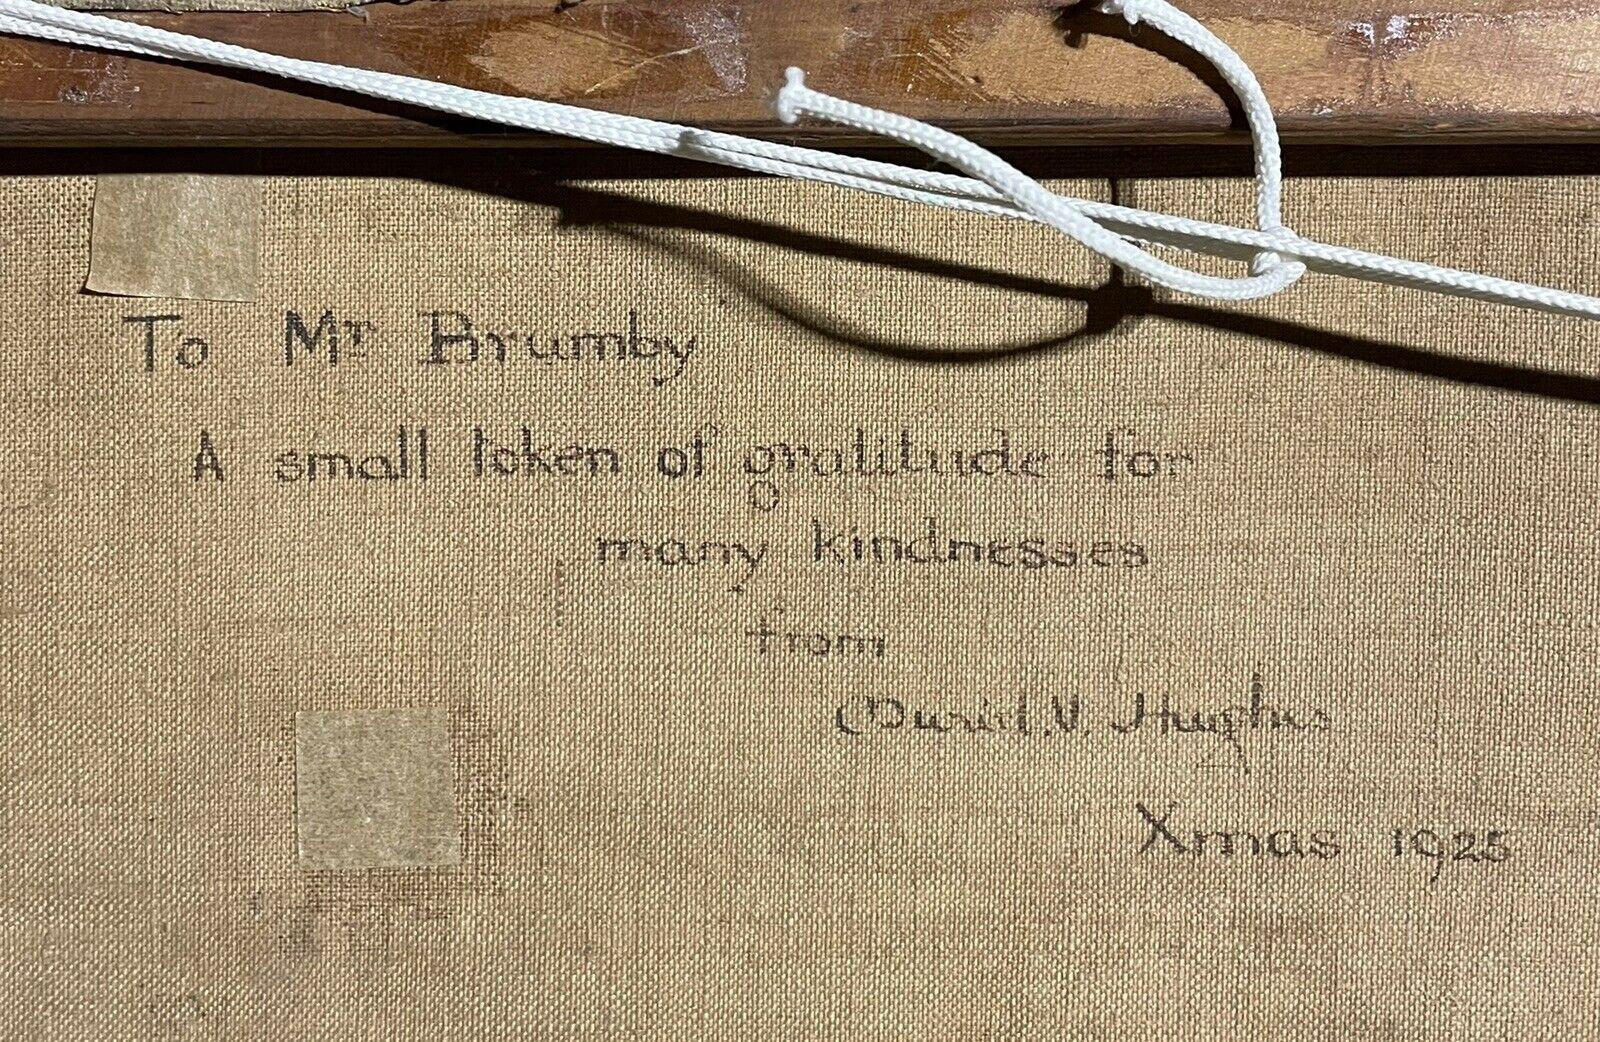 To Mr Brumby
A small token of gratitude for
many kindnesses
from
V. Hughes
Xmas 1925